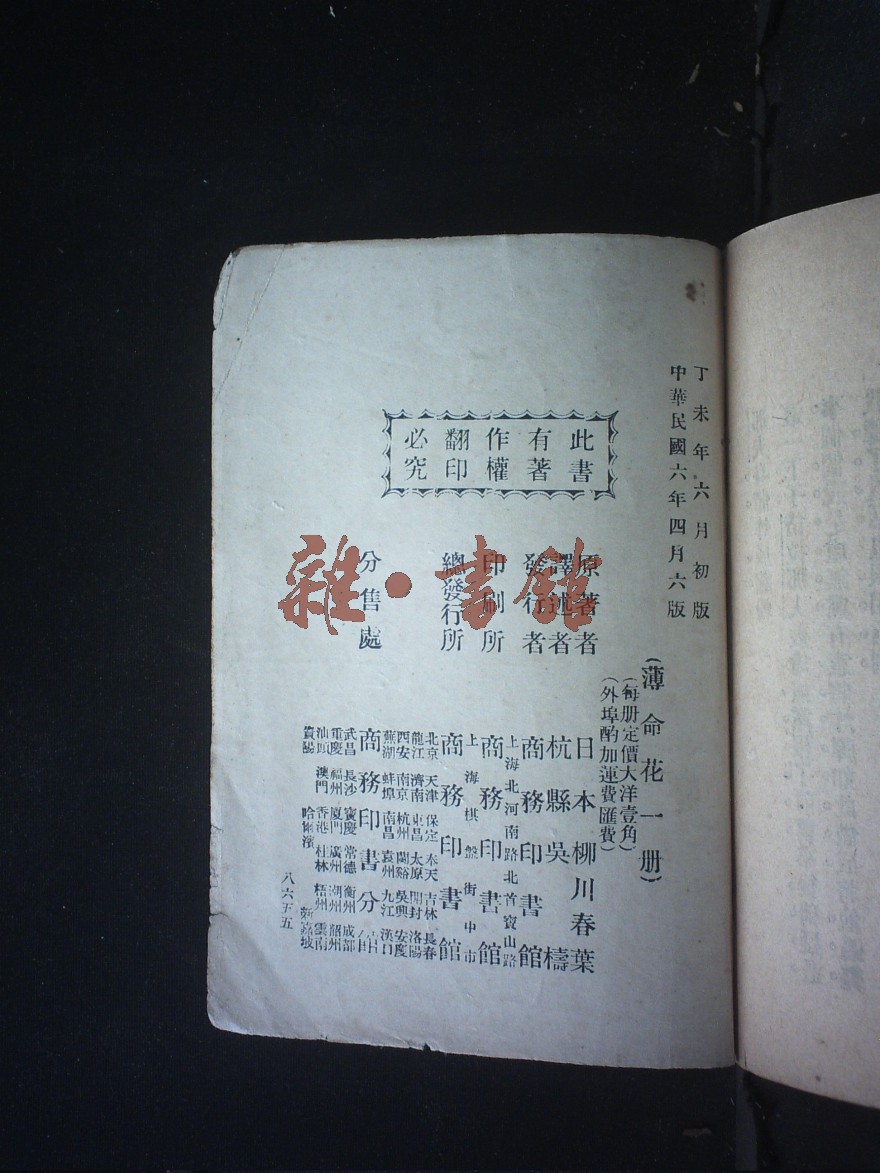 丁未年六月初版
中華民國六年四月六版
此書
有著
作權
翻印
必究
(薄命花一册)
(每册定價大洋壹角)
(外埠酌加運費匯費)
原著者 日本柳川春葉
譯述者 杭縣吳檮
發行者 商務印書館
上海北河南路北首寶山路
印刷所 商務印書館
上海棋盤街中市
總發行所 商務印書館
北京 天津 保定 奉天 吉林 長春
龍江 濟南 東昌 太原 開封 洛陽
西安 南京 杭州 蘭谿 吳興 安慶
蕪湖 蚌埠 南昌 袁州 九江 漢口
分售處 商務印書分館
武昌 長沙 寶慶 常德 衡州 成都
重慶 福州 厦門 廣州 潮州 韶州
汕頭 澳門 香港 桂林 梧州 雲南
貴陽 哈爾濱 新嘉坡
八六五五
雜·書館